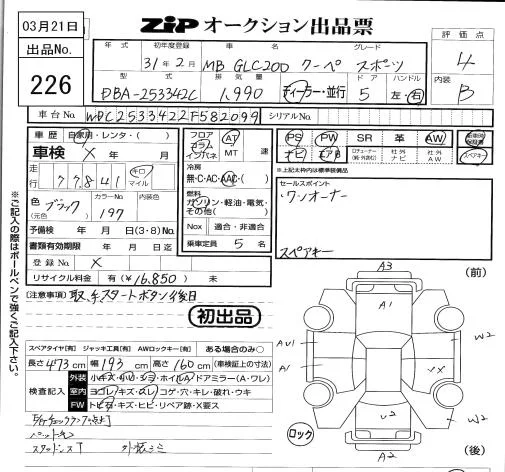 03月21日
ZiP オークション出品票
出品No.
226
年式 初年度登録 車名 グレード
31年 2月 MB GLC200 クーペ スポーツ
型式 排気量 ドア ハンドル
DBA-253342C 1,990 ディーラー・並行 5 左・右
評価点
4
内装
B
車台No. WDC2533422F582099 シリアルNo.
車歴 自家用・レンタ・( )
車検 X 年 月
走行 77,841 キロ マイル
色 ブラック カラーNo. 197 内装色
(元色)
予備検 年 月 日(3・8)No.
書類有効期限 年 月 日迄
登録No. X
リサイクル料金 有(¥16,850) 未
フロア コラム インパネ AT MT 速
冷房
無・C・AC・AAC・( )
燃料
ガソリン・軽油・電気・その他( )
Nox 適合・非適合
乗車定員 5 名
PS PW SR 革 AW
ナビ エアB 社外ナビ 社外AW スペアキー
※上記太枠内は標準装備品
セールスポイント
・ワンオーナー
スペアキー
※ご記入の際はボールペンで強くご記入下さい。
[注意事項] 取、手、スタートボタン後日
初出品
スペアタイヤ[有] ジャッキ工具[有] AWロックキー[有] ある場合のみ○
長さ 473cm 幅 193cm 高さ 160cm (車検証上の寸法)
検査記入
外装 小キズ・小凹・ (A・ワレ)
室内 ヨゴレ・キズ・スレ・コゲ・穴・キレ・破れ・ウキ
FW トビ石・キズ・ヒビ・リペア跡・X要ス
外装ミミ
A3 (前)
A1
AU1
A1
W2
YX
U2
W2
ロック
A2 (後)